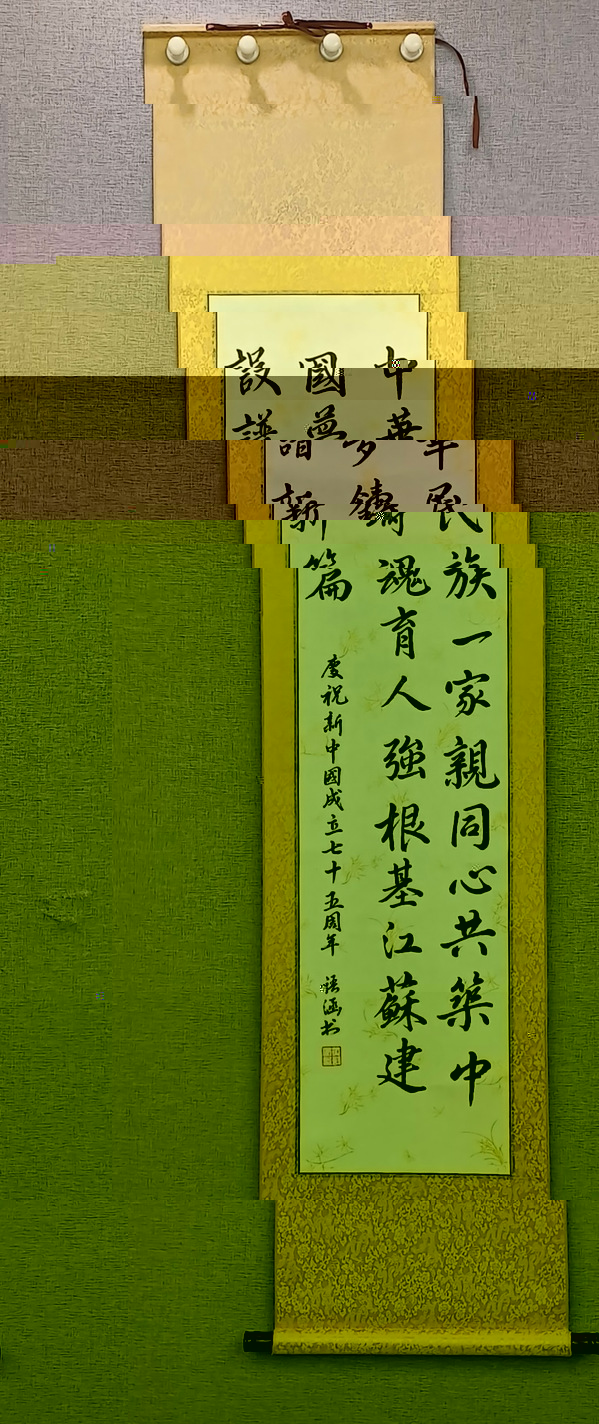 中華民族一家親同心共築中
國夢鑄魂育人強根基江蘇建
設譜新篇
慶祝新中國成立七十五周年 涵书